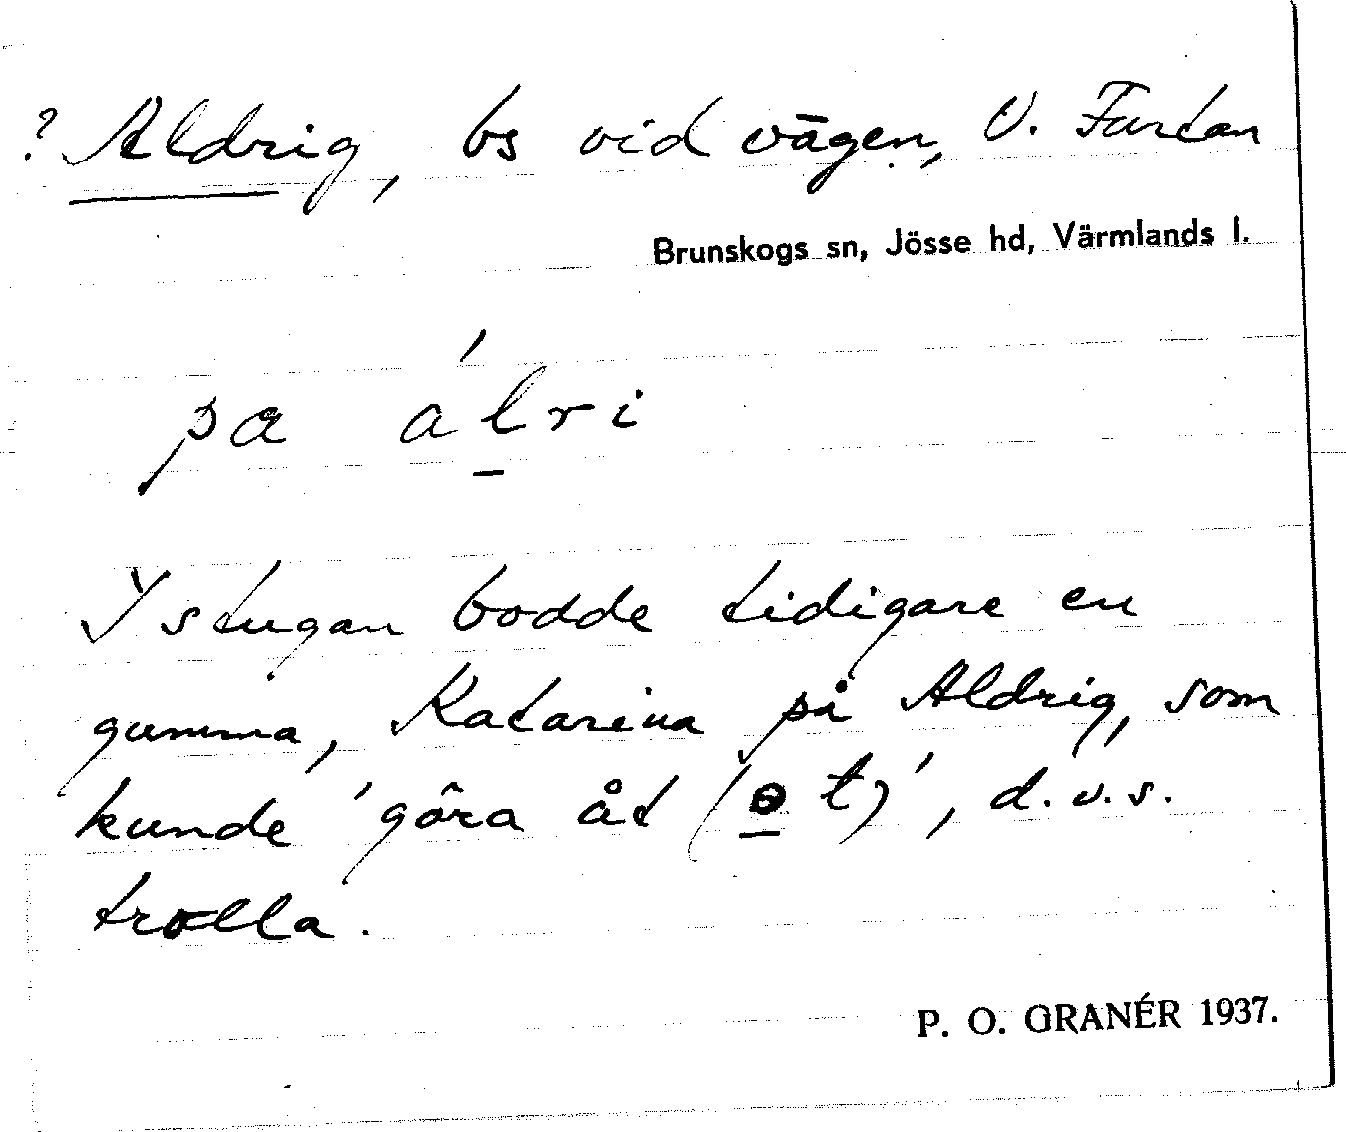 ? Aldrig, bs vid vägen, V. Furtan
Brunskogs sn, Jösse hd, Värmlands l.
pa álri
I stugan bodde tidigare en
gumma, Katarina på Aldrig, som
kunde 'göra åt (ɵt)', d.v.s.
trolla.
P. O. GRANÉR 1937.